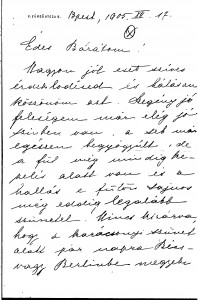 Bpest, 1905. XII. 17.
Édes Barátom!
Nagyon jól esett szíves
érdeklődésed és hálásan
köszönöm azt. Szegény jó
feleségem már elég jó
színben van, a seb már
egészen begyógyult, de
a fül még mindig ke-
zelés alatt van és a
hallás e fülön sajnos
még eddig legalább
szünetel. Nincs kizárva,
hogy a karácsonyi szünet
alatt pár napra Bécs-
vagy Berlinbe megyek